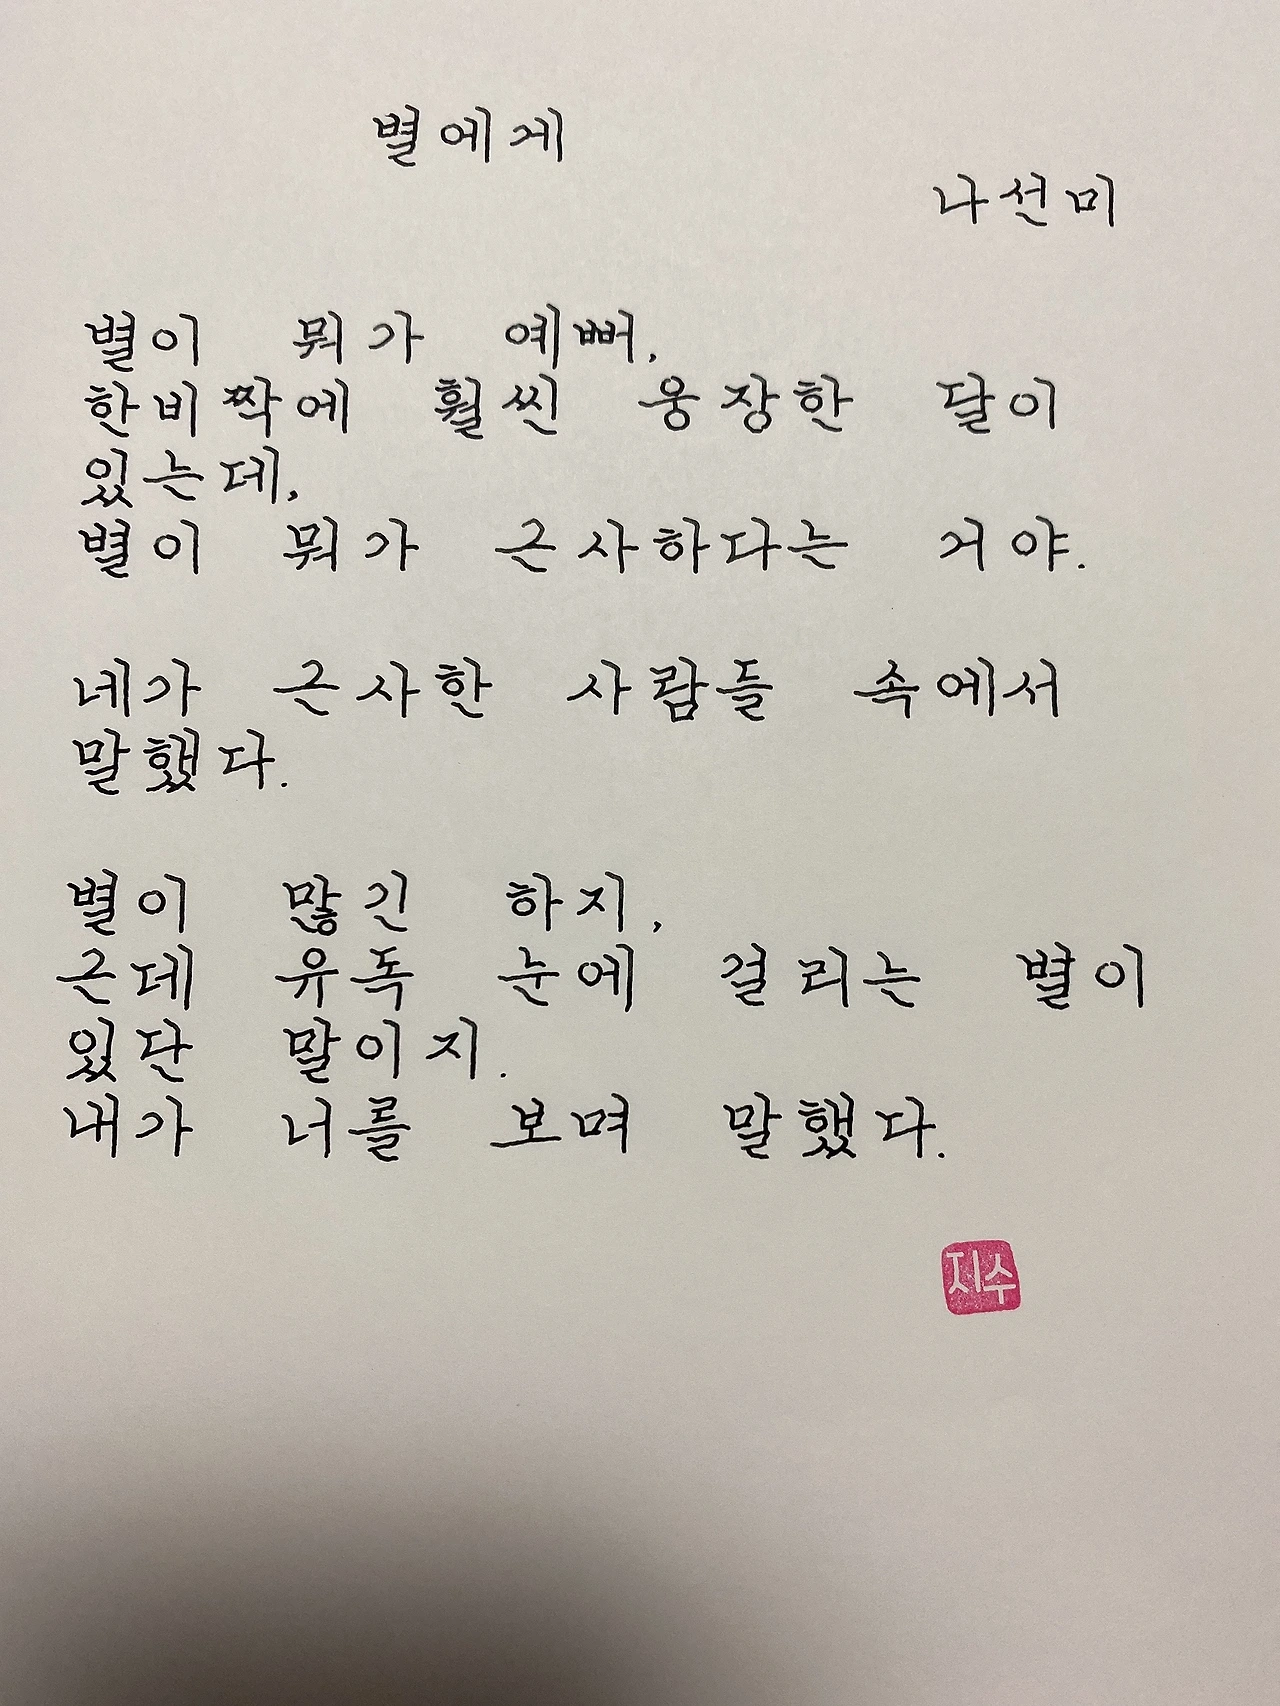 별에게
나선미
별이 뭐가 예뻐,
한비짝에 훨씬 웅장한 달이
있는데,
별이 뭐가 근사하다는 거야.
네가 근사한 사람들 속에서
말했다.
별이 많긴 하지,
근데 유독 눈에 걸리는 별이
있단 말이지.
내가 너를 보며 말했다.
지수